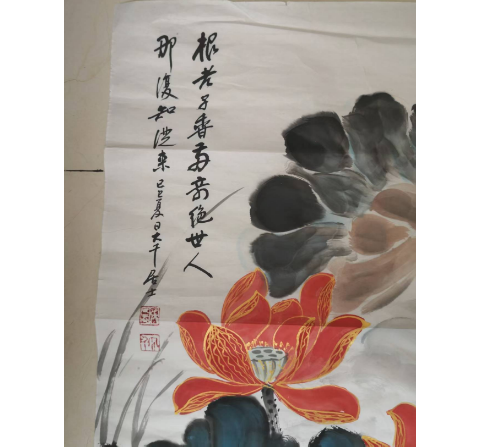 根苦子香两奇绝世人
那復知從來己巳夏日大千居士